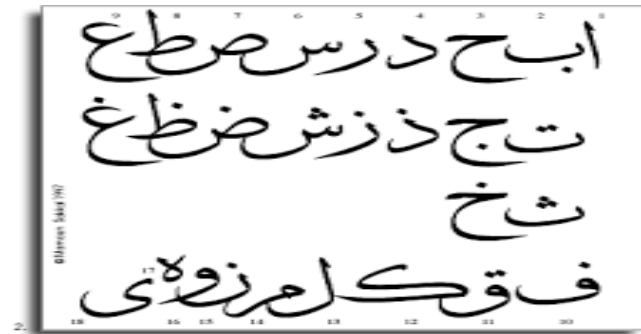 9 8 7 6 5 4 3 2 1
ا ب ح د ر س ص ط ع
ت ج ذ ز ش ض ظ غ
ث خ
ف ق ك ل م ن و ه ى
17
18 16 15 14 13 12 11 10
©Mamoun Sakkal 1997
2.